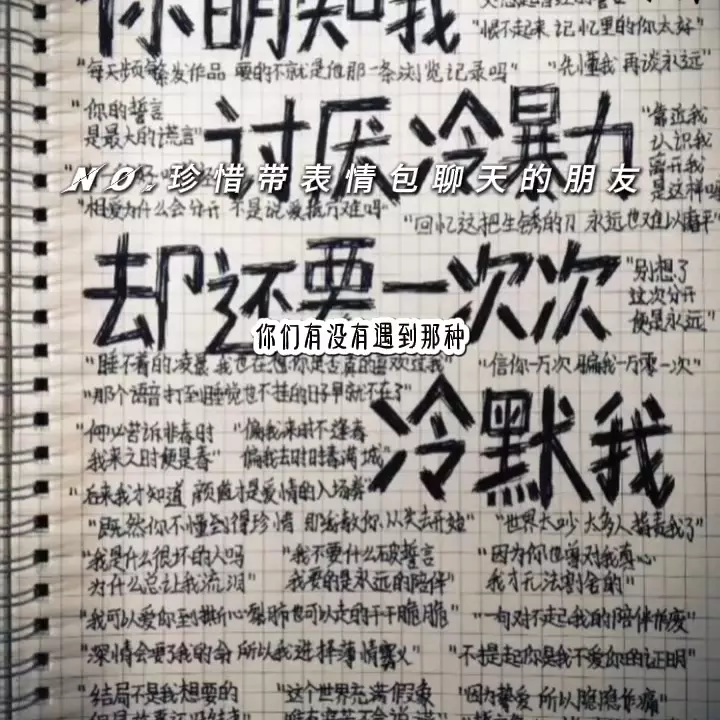 你明知我
"恨不起来 记忆里的你太好"
"每天频繁发作品 要的不就是他那一条浏览记录吗"
"先懂我 再谈永远"
"你的誓言
是最大的谎言"
讨厌冷暴力
"靠近我
认识我
离开我
是这样吗
NO.珍惜带表情包聊天的朋友
"相爱为什么会分开 不是说爱抵万难吗"
"回忆这把生锈的刀 永远也难以磨平"
却还要一次次
"别想了
这次分开
便是永远"
你们有没有遇到那种
"睡不着的凌晨 我也在想你是否真的喜欢过我"
"信你一万次 骗我一万零一次"
"那个语音打到睡觉也不挂的日子早就不在了"
冷默我
"何必苦诉非春时
我来之时便是春"
"偏我来时不逢春
偏我去时春满城"
"后来我才知道 颜值才是爱情的入场券"
"既然你不懂到得珍惜 那我教你从失去开始"
"世界太吵 太多人指责我了"
"我是什么很坏的人吗
为什么总让我流泪"
"我不要什么破誓言
我要的是永远的陪伴"
"因为你也曾对我真心
我才无法割舍的"
"我可以爱你到撕心裂肺也可以走的干干脆脆"
"一句对不起我的陪伴作废"
"深情会要了我的命 所以我选择薄情寡义"
"不提起你是我不爱你的证明"
"结局不是我想要的
"这个世界充满假象
"因为挚爱 所以隐隐作痛"